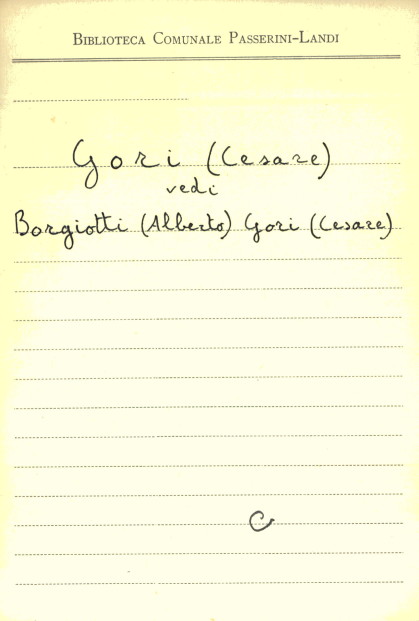 Biblioteca Comunale Passerini-Landi
Gori (Cesare)
vedi
Borgiotti (Alberto) Gori (Cesare)
C